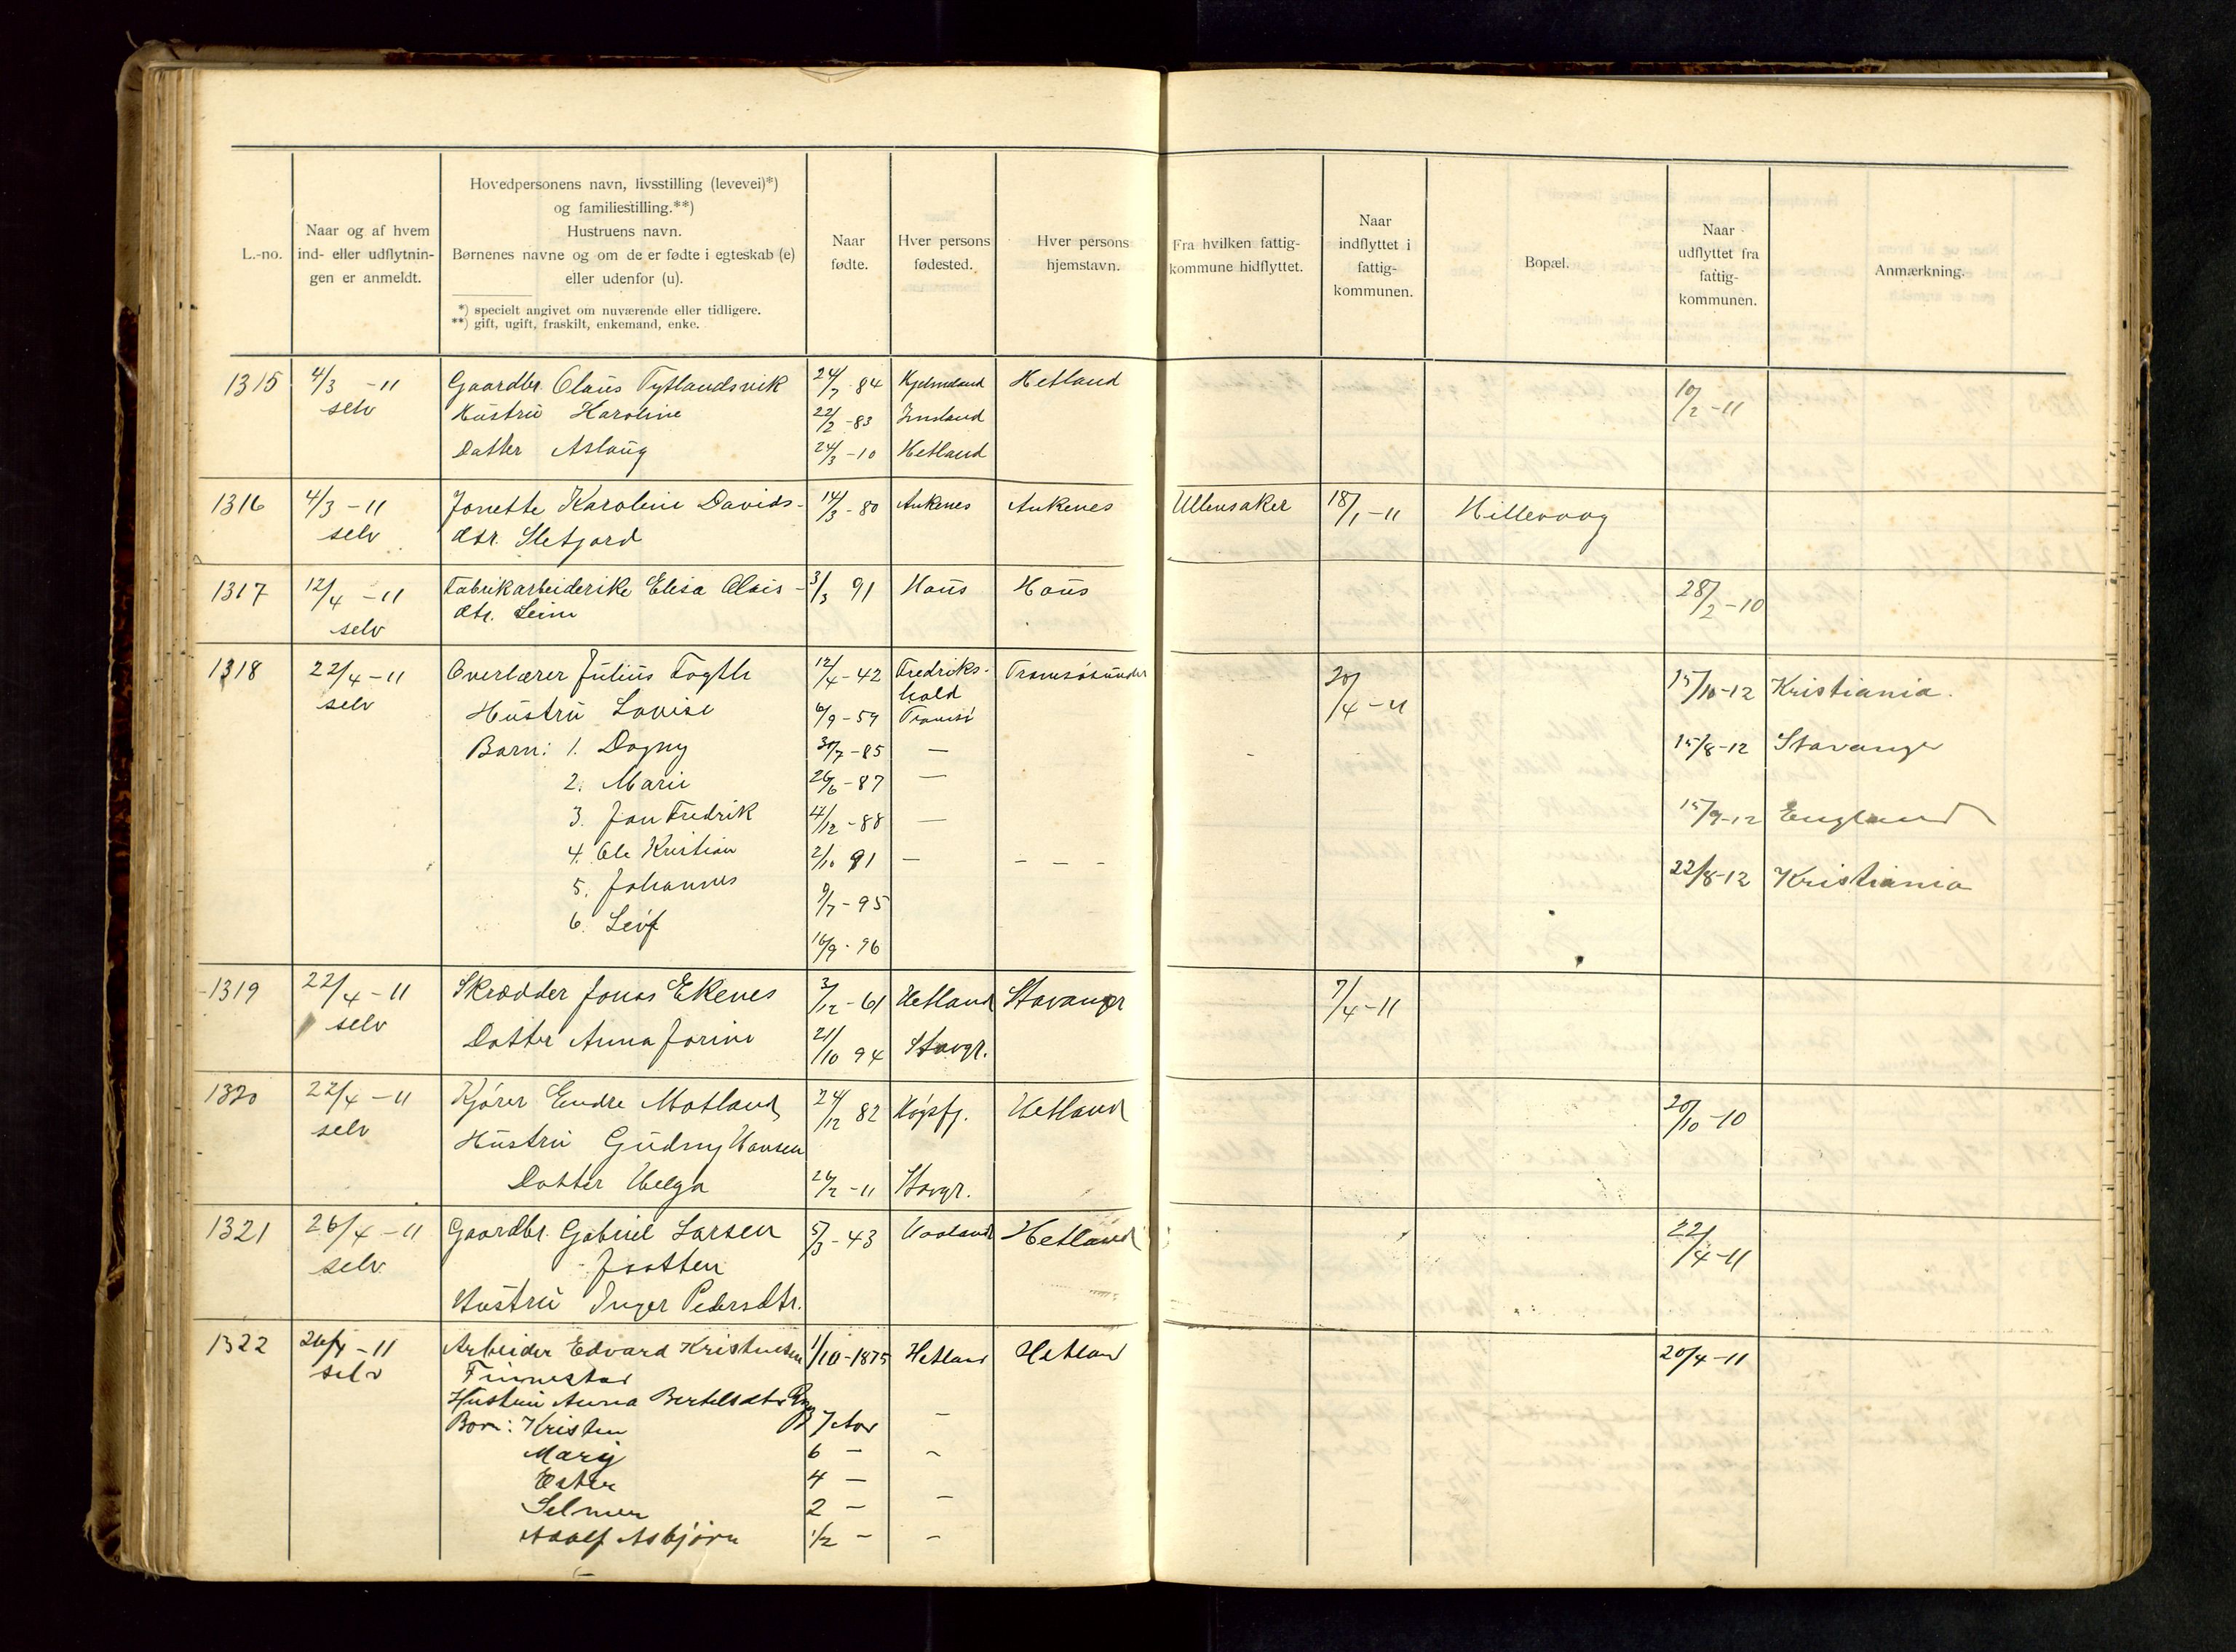 L.-no.
Naar og af hvem
ind- eller udflytnin-
gen er anmeldt.
Hovedpersonens navn, livsstilling (levevei)*)
og familiestilling.**)
Hustruens navn.
Børnenes navne og om de er fødte i egteskab (e)
eller udenfor (u).
*) specielt angivet om nuværende eller tidligere.
**) gift, ugift, fraskilt, enkemand, enke.
Naar
fødte.
Hver persons
fødested.
Hver persons
hjemstavn.
Fra hvilken fattig-
kommune hidflyttet.
Naar
indflyttet i
fattig-
kommunen.
Bopæl.
Naar
udflyttet fra
fattig-
kommunen.
Anmærkning.
1315 4/3 -11 Gaardbr. Olaus Tytlandsvik 24/7 84 Hjelmeland Hetland 10/2 -11
selv Hustru Karoline 22/2 -83
Datter Aslaug 24/3 -10 Hetland
1316 4/3 -11 Jonette Karoline Davids- 14/3 -80 Ankenes Ankenes Ullensaker 18/1 -11 Hillevaag
selv dtr. Sletjord
1317 12/4 -11 Fabrikarbeiderske Elisa Olais- 3/3 91 Haus Haus 28/2 -10
selv dtr. Leim
1318 22/4 -11 Overlærer Julius Fogth 12/4 -42 Fredriks- Tromsøsundet 20/4 -11 15/10 -12 Kristiania.
selv hald
Hustru Lovise 6/9 -59 Tromsø
Barn: 1. Dagny 30/7 -85 — 15/8 -12 Stavanger
2. Marie 26/6 -87 —
3. Jan Fredrik 17/12 -88 — 15/9 -12 England
4. Ole Kristian 2/10 91 — — — —
5. Johannes 9/7 -95 22/8 -12 Kristiania
6. Leif 16/9 - 96
1319 22/4 -11 Skrædder Jonas Ekenes 3/12 -61 Hetland Stavanger 7/4 -11
selv Datter Anna Jorine 21/10 94 Stavgr.
1320 22/4 -11 Kjører Endre Motland 24/12 82 Høgsfj. Hetland 20/10 -10
selv Hustru Gudny Hansen
Datter Helga 26/2 -11 Stavgr.
1321 26/4 -11 Gaardbr. Gabriel Larsen 5/3 -43 Haaland Hetland 22/4 -11
selv Jaatten
Hustru Inger Pedersdtr.
1322 26/4 -11 Arbeider Edvard Kristensen 1/10 -1875 Hetland Hetland 20/4 -11
selv Finnestad
Hustru Anna Bertelsdtr
Born: Kristen 7 Aar —
Mary 6 — —
Ester 4 —
Selmer 2 — —
Adolf Asbjørn 1/2 — —